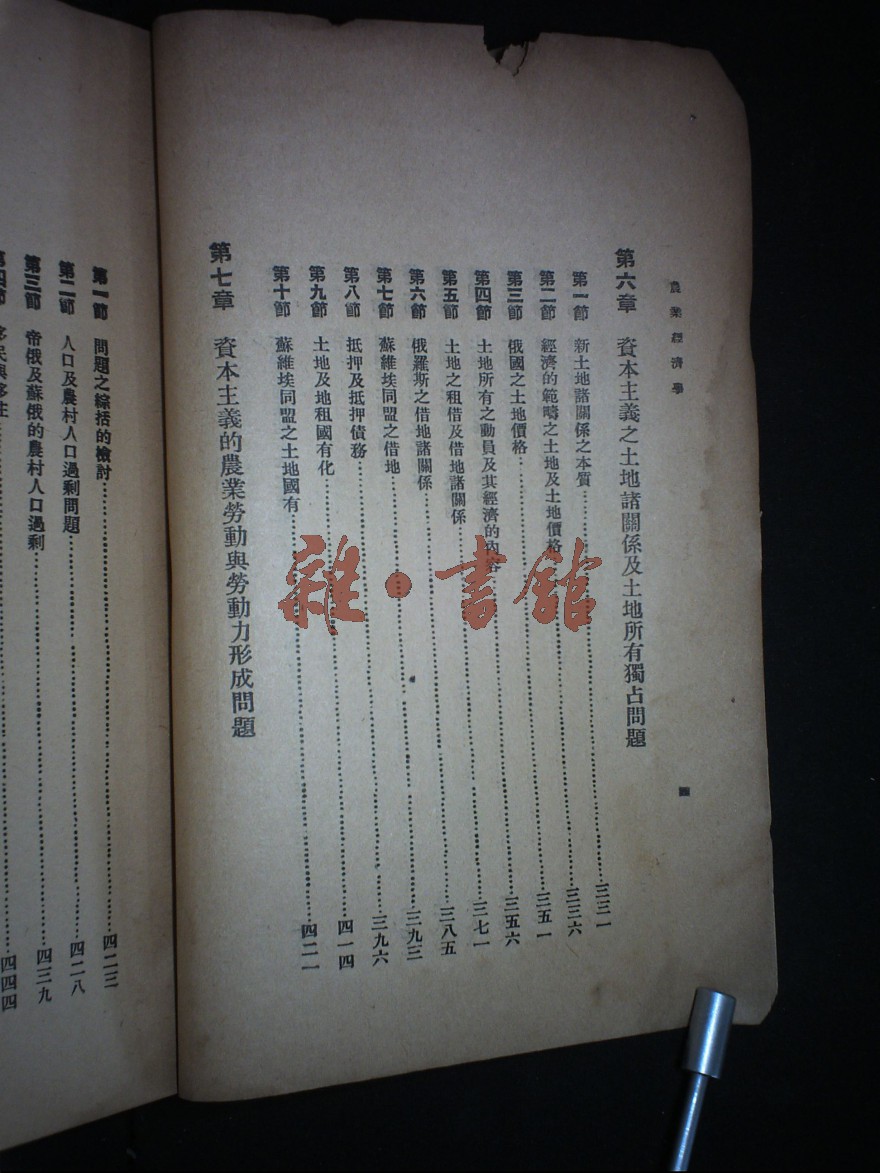 農業經濟學
四
第六章 資本主義之土地諸關係及土地所有獨占問題
第一節 新土地諸關係之本質……三三一
第二節 經濟的範疇之土地及土地價格……三三六
第三節 俄國之土地價格……三五一
第四節 土地所有之動員及其經濟的內容……三五六
第五節 土地之租借及借地諸關係……三七一
第六節 俄羅斯之借地諸關係……三八五
第七節 蘇維埃同盟之借地……三九三
第八節 抵押及抵押債務……三九六
第九節 土地及地租國有化……四一四
第十節 蘇維埃同盟之土地國有……四二一
第七章 資本主義的農業勞動與勞動力形成問題
第一節 問題之綜括的檢討……四二三
第二節 人口及農村人口過剩問題……四二八
第三節 帝俄及蘇俄的農村人口過剩……四三九
第四節 移民與移住……四四四
雜·書館